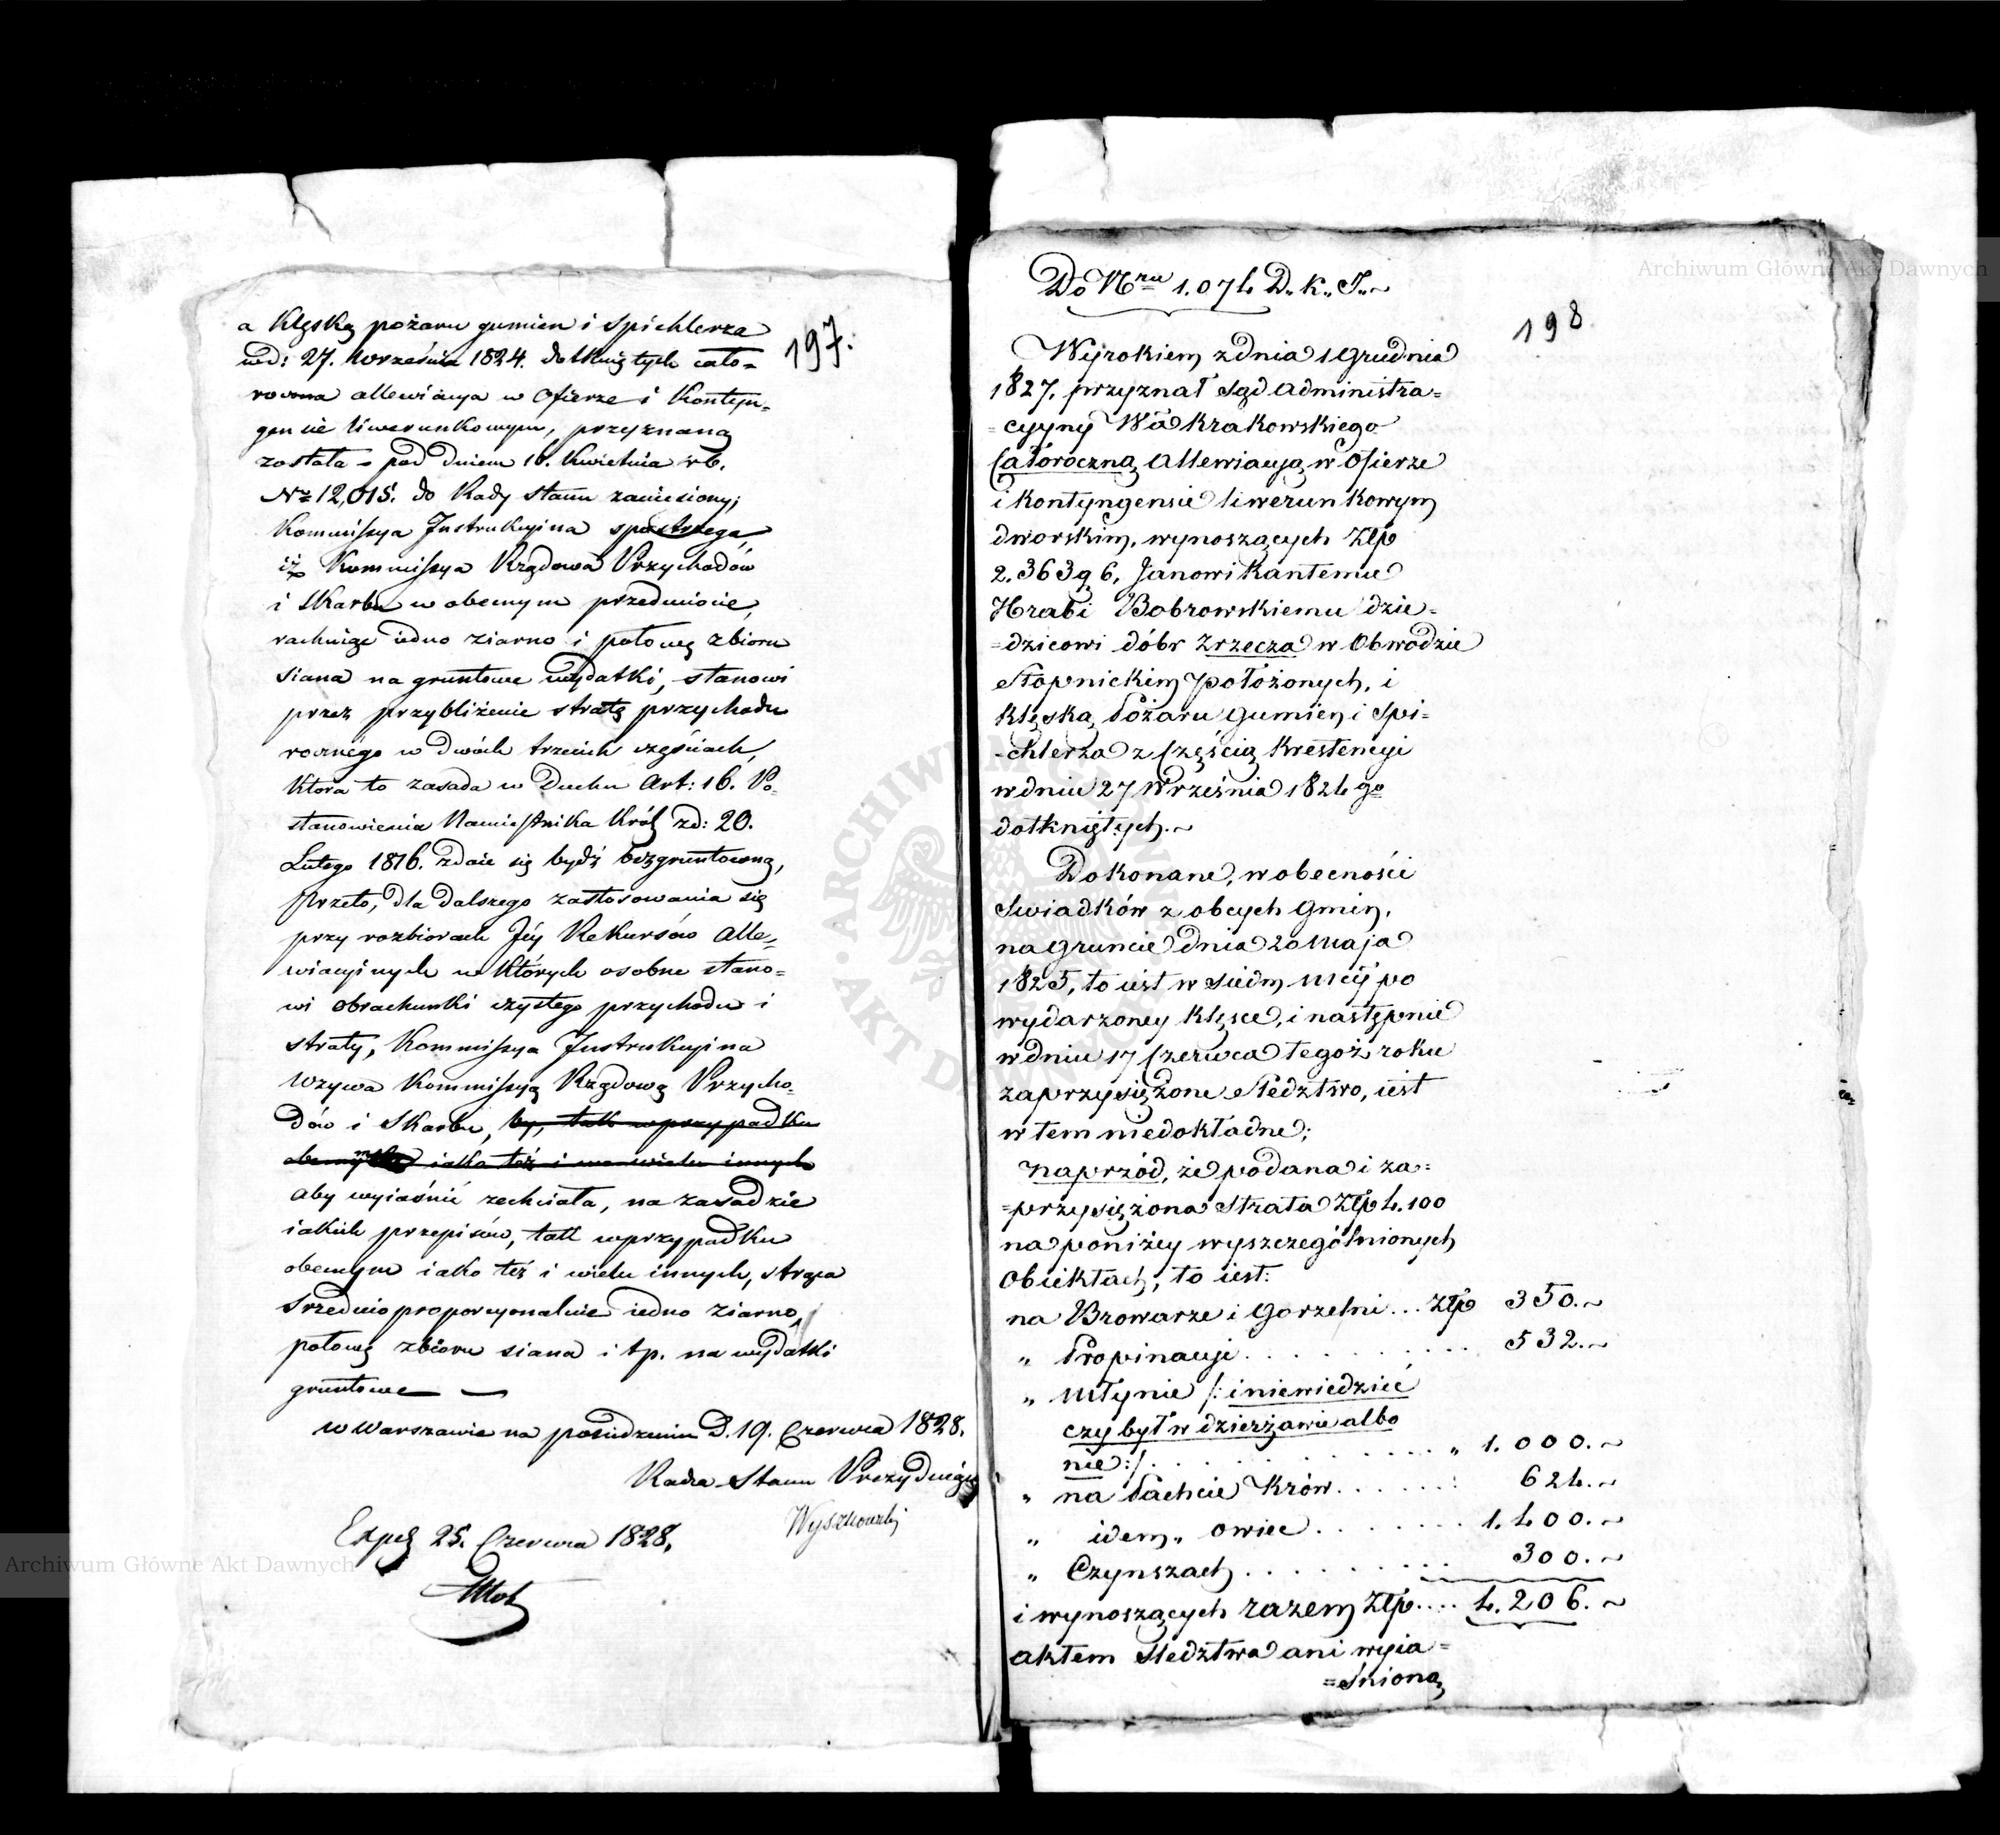 197.
a Klęską pożaru gumien i Spichlerza
wd: 27. Września 1824. dotkniętych cało=
roczna allewiacya w Ofierze i Kontyn=
gensie liwerunkowym, przyznaną
została = pod dniem 16. Kwietnia rb.
Nr 12,015. do Rady Stanu zaniesiony;
Kommissya Instrukcyina spostrzega,
iż Kommissya Rządowa Przychodów
i Skarbu w obecnym przedmiocie,
rachuiąc iedno ziarno i połowę zbioru
siana na gruntowe wydatki, stanowi
przez przybliżenie stratę przychodu
rocznego w dwóch trzecich częściach,
Która to zasada w Duchu Art: 16. Po=
stanowienia Namiestnika Król zd: 20.
Lutego 1816. zdaie się bydź bezgruntowną,
przeto, dla dalszego zastosowania się
przy rozbiorach Jéy Rekursów Alle=
wiacyinych w Których osobne stano=
wi obrachunki czystego przychodu i
straty, Kommissya Instrukcyina
Wzywa Kommissyą Rządową Przycho=
dów i Skarbu, by, tak w przypadku
obecnym iako też i we wielu innych
aby wyiaśnić zechciała, na zasadzie
iakich przepisów, tak w przypadku
obecnym iako też i wielu innych, strąca
srednio proporcyonalnie iedno ziarno,
połowę zbioru siana i tp. na wydatki
gruntowe —
w Warszawie na posiedzeniu D. 19. Czerwca 1828.
Radca Stanu Prezyduiący
Wyszkowski
Exped 25. Czerwca 1828.
Do Nru 1.074 D. K. J.
198
Wyrokiem z dnia 1 Grudnia
1827. przyznał Sąd Administra=
=cyyny Wa Krakowskiego
Całoroczną Allewiacyą w Ofierze
i Kontyngensie liwerunkowym
dworskim, wynoszących Złp
2.363 g 6. Janowi Kantemu
Hrabi Bobrowskiemu dzie=
=dzicowi dóbr Zrzecza w Obwodzie
Stopnickim położonych, i
klęską Pożaru Gumien i Spi=
=chlerza z Częścią Krestencyi
w dniu 27 Września 1824 go
dotkniętych.~
Dokonane, w obecności
Swiadków z obcych Gmin,
na gruncie dnia 20 Maja
1825, to iest w siedm mcy po
wydarzoney klęsce, i następnie
w dniu 17 Czerwca tegoż roku
zaprzysiężone Sledztwo, iest
w tem niedokładne;
naprzód, że podana i za=
=przysiężona Strata Złp 4.100
na poniżey wyszczególnionych
Obiektach, to iest:
na Browarze i Gorzelni... Złp 350.~
„ Propinacyi. . . . . . . . . . 532.~
„ Młynie /: i niewiedzieć
czy był w dzierżawie albo
nie :/ . . . . . . . . . . „ 1.000.~
„ na Pachcie Krów. . . . . . . 624.~
„ idem „ owiec . . . . . . . 1.400.~
„ Czynszach . . . . . . . . . 300.~
i wynoszących razem Złp.... 4.206.~
aktem Sledztwa ani wyia=
=śnioną